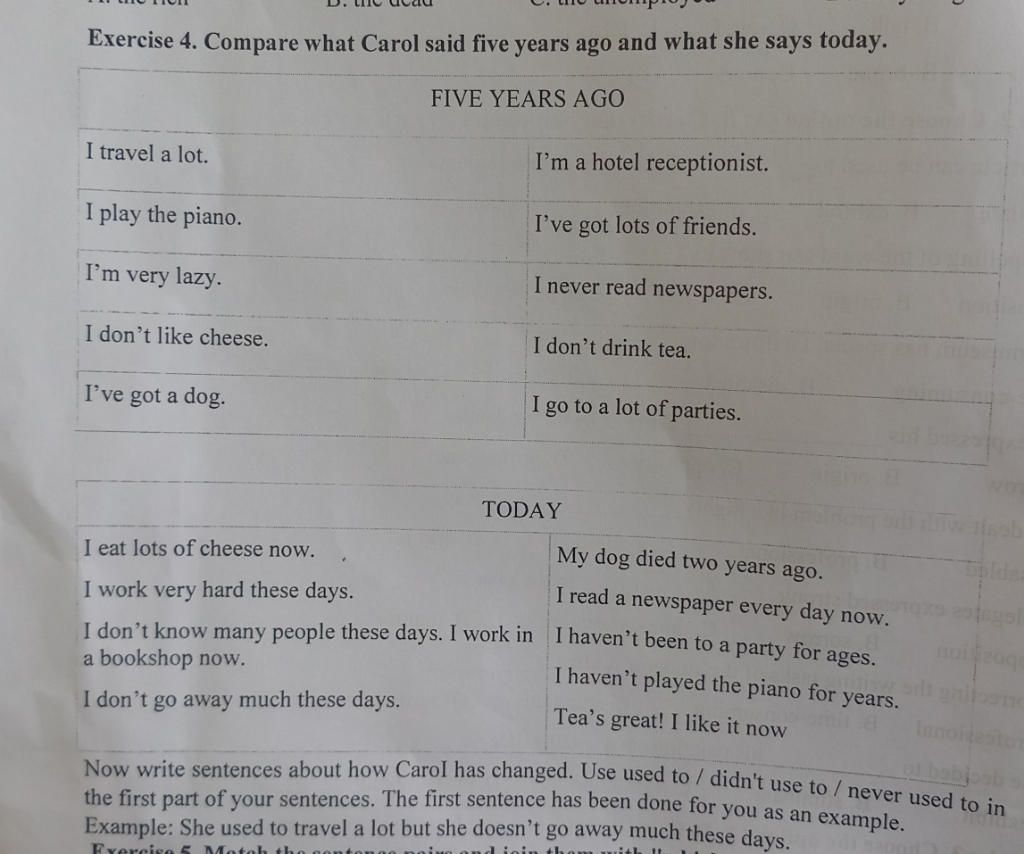 A. the rich B. the dead C. the unemployed
Exercise 4. Compare what Carol said five years ago and what she says today.
FIVE YEARS AGO
I travel a lot.
I'm a hotel receptionist.
I play the piano.
I've got lots of friends.
I'm very lazy.
I never read newspapers.
I don't like cheese.
I don't drink tea.
I've got a dog.
I go to a lot of parties.
TODAY
I eat lots of cheese now.
I work very hard these days.
I don't know many people these days. I work in
a bookshop now.
I don't go away much these days.
My dog died two years ago.
I read a newspaper every day now.
I haven't been to a party for ages.
I haven't played the piano for years.
Tea's great! I like it now
Now write sentences about how Carol has changed. Use used to / didn't use to / never used to in
the first part of your sentences. The first sentence has been done for you as an example.
Example: She used to travel a lot but she doesn't go away much these days.
Exercise 5. Match the sentence pairs and join them with